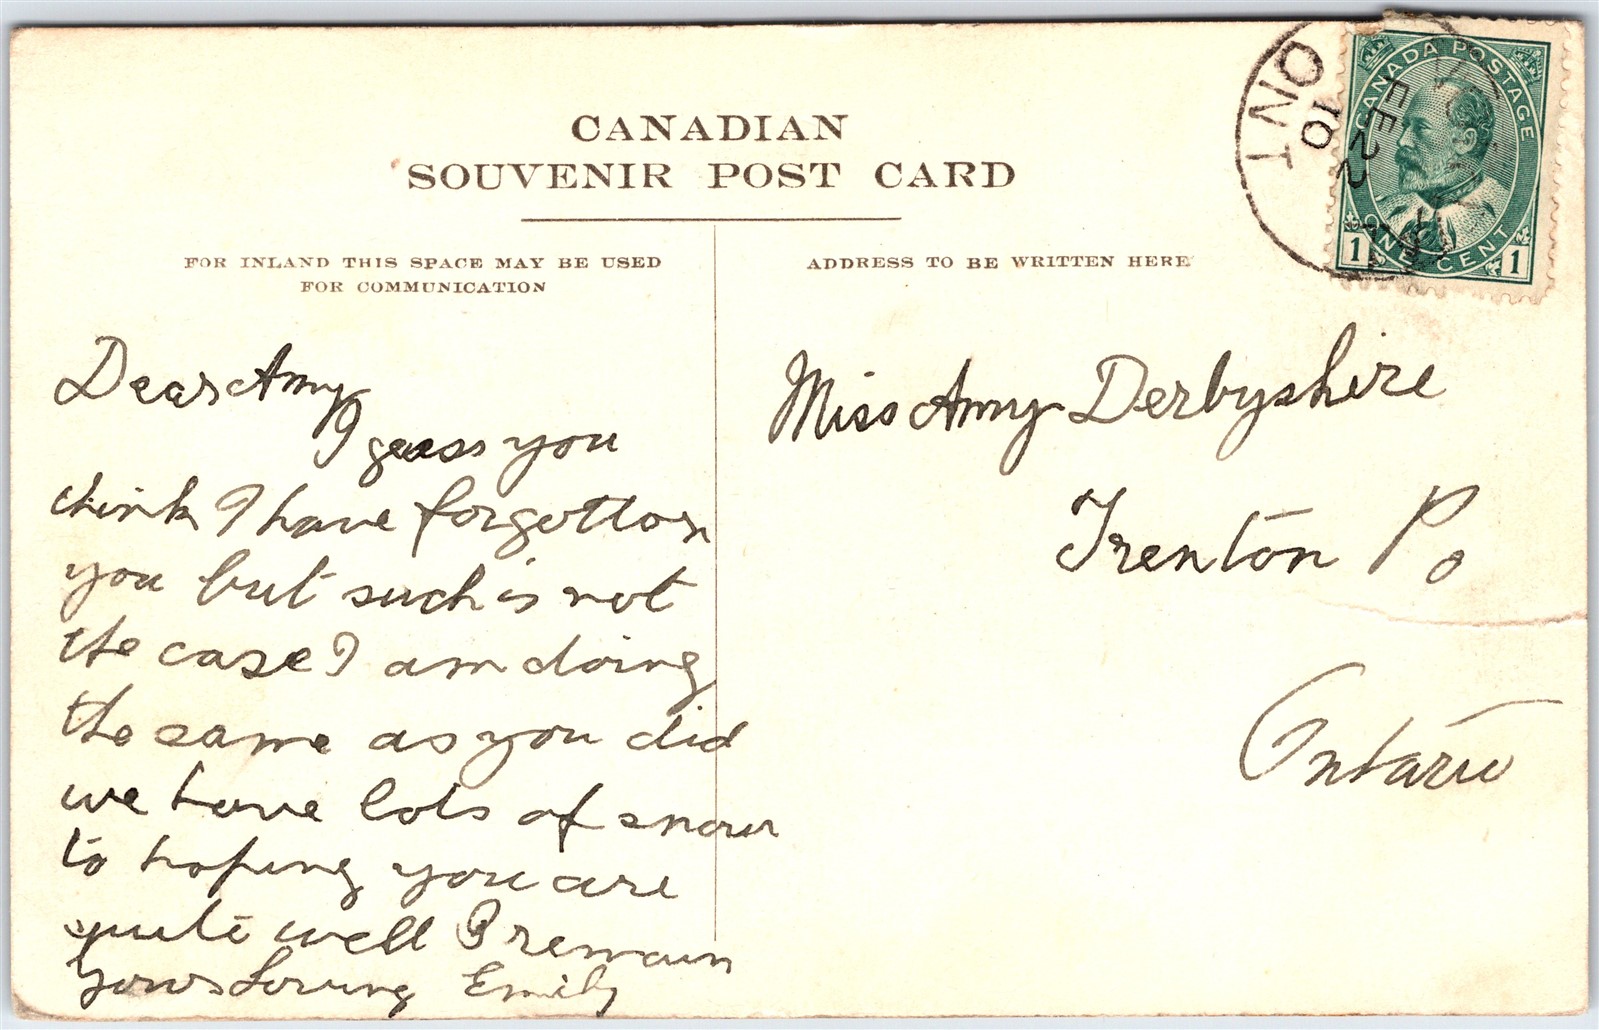 CANADIAN
SOUVENIR POST CARD
FOR INLAND THIS SPACE MAY BE USED
FOR COMMUNICATION
ADDRESS TO BE WRITTEN HERE
CANADA POSTAGE
1 ONE CENT 1
ONT
FE 22
10
Dear Amy
I guess you
think I have forgotton
you but such is not
the case I am doing
the same as you did
we have lots of snow
to hoping you are
quite well I remain
Yours Loving Emily
Miss Amy Derbyshire
Trenton Po
Ontario